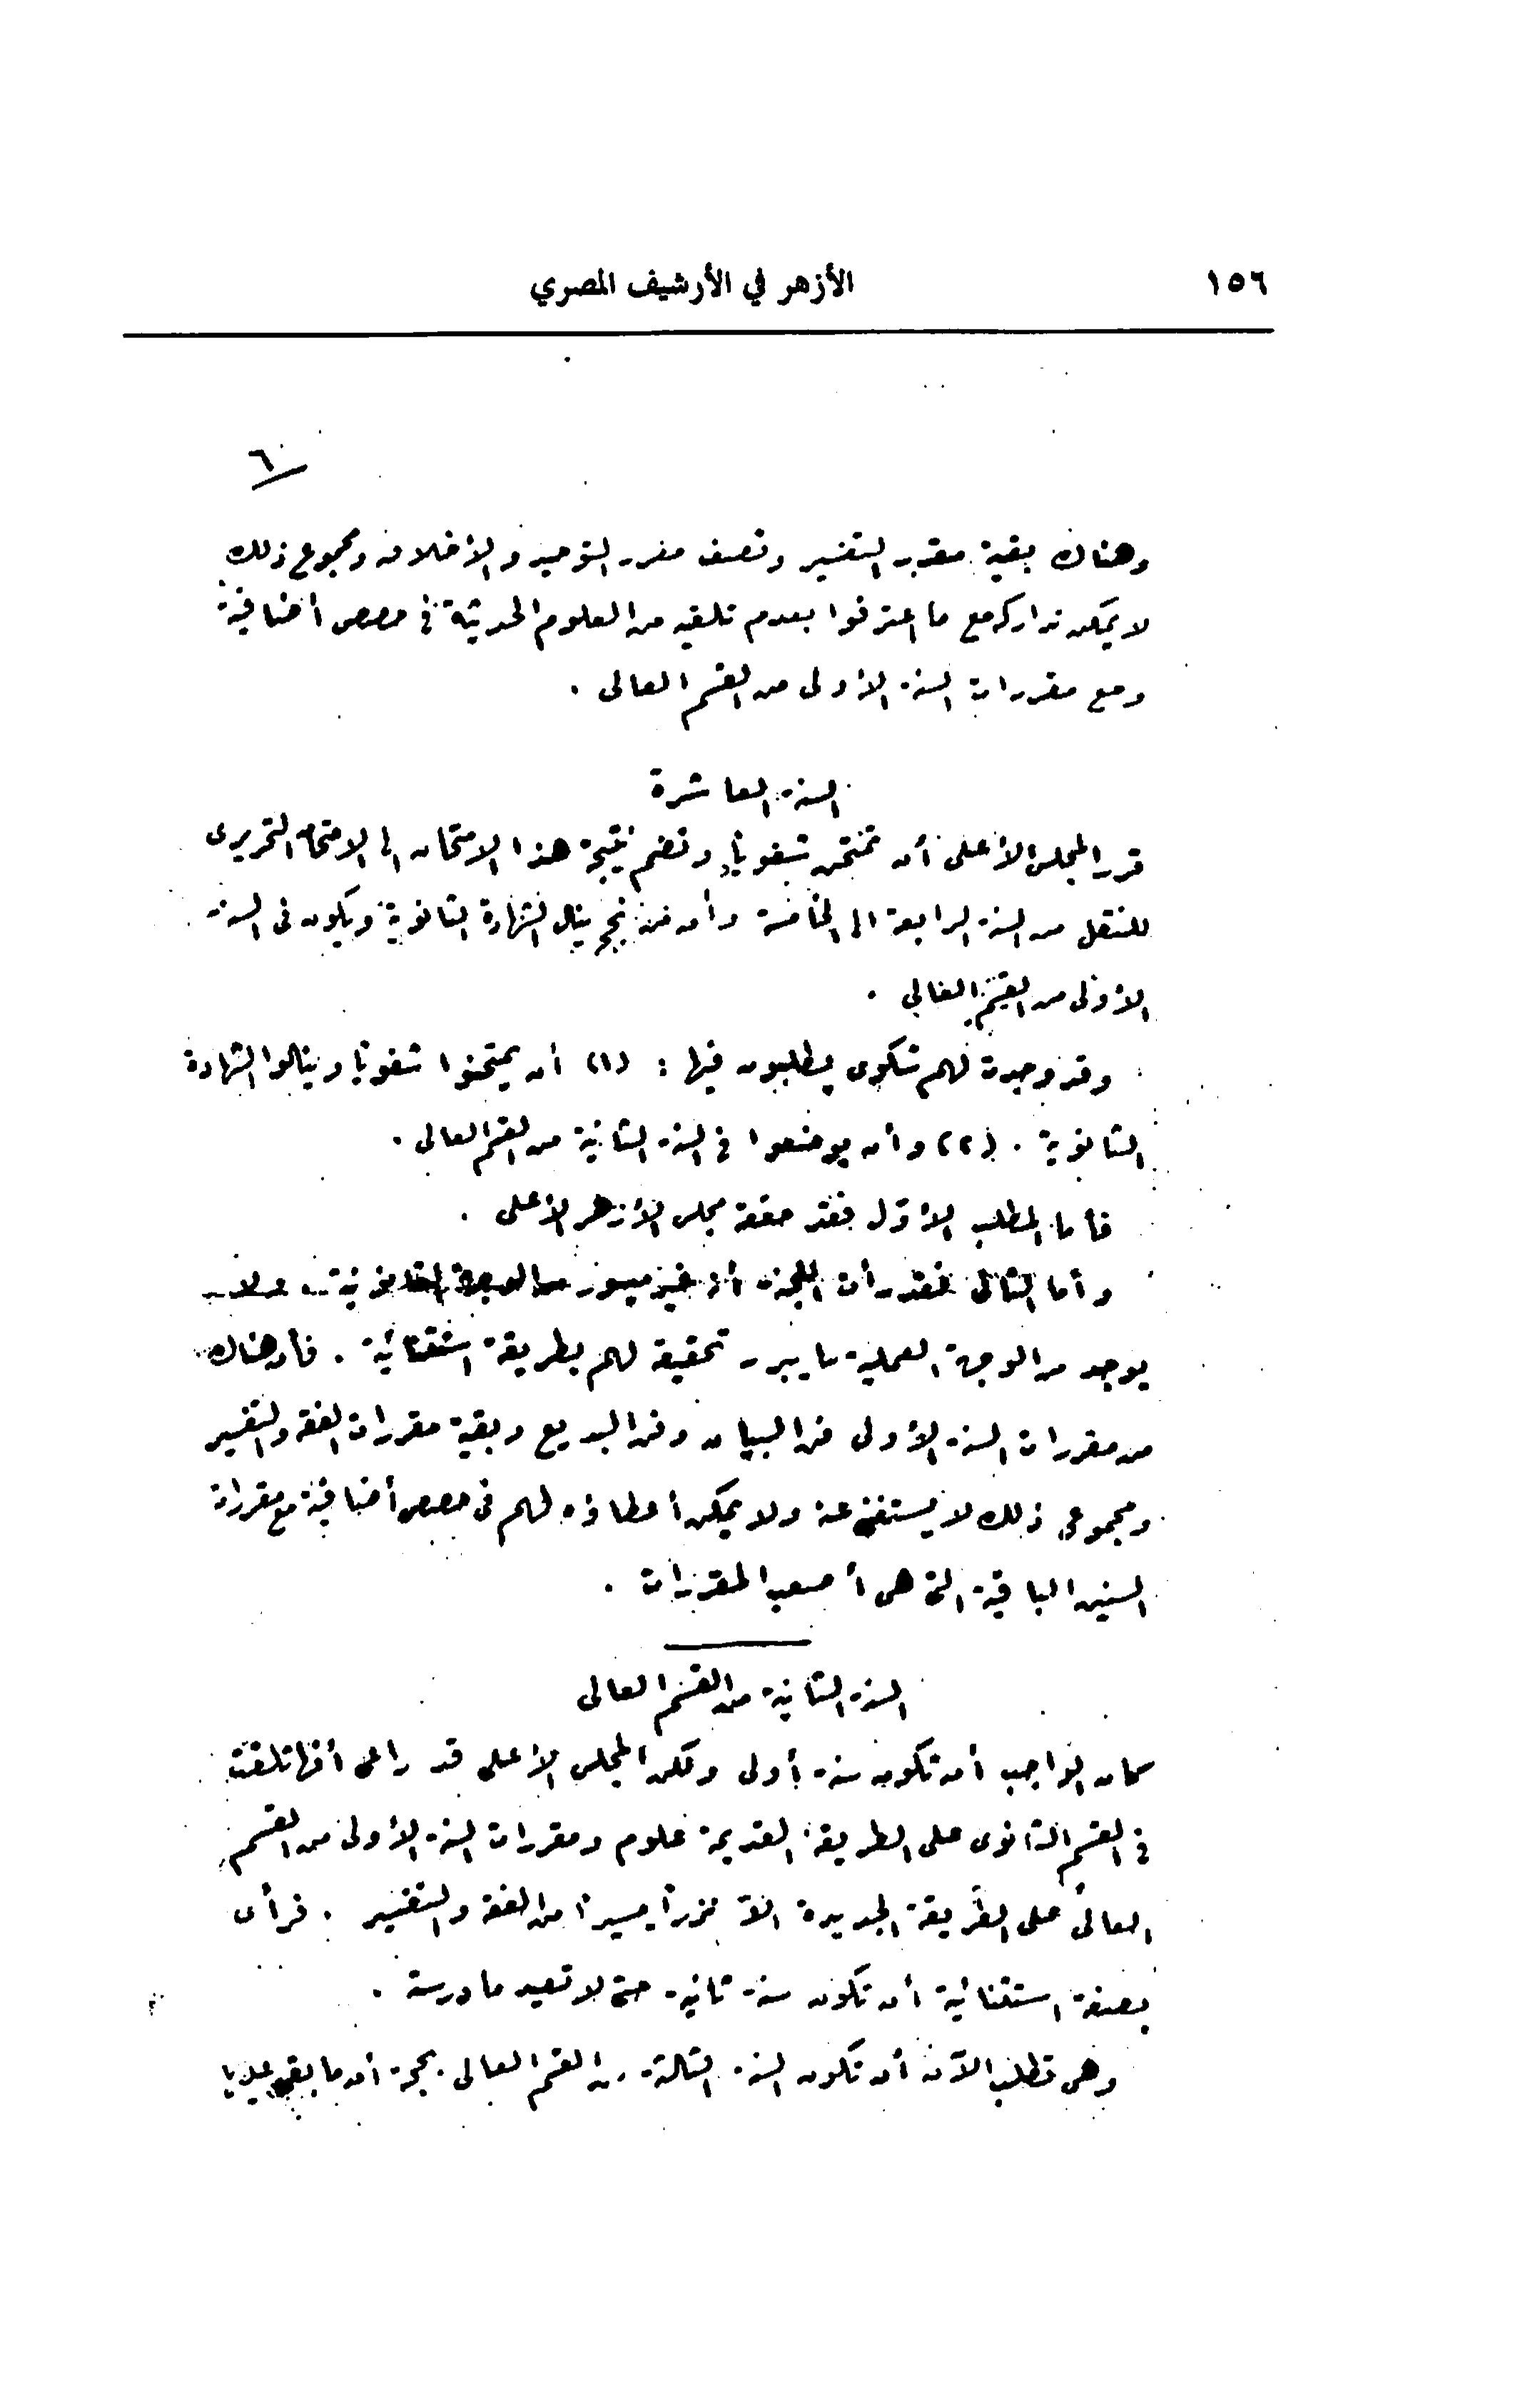 ١٥٦
الأزهر في الأرشيف المصري
٦
وهناك بقية مقرر التفسير ونصف مقرر التوحيد والأخلاق ومجموع ذلك
لا يمكن تداركه مع ما اعترفوا بعدم تلقيه من العلوم الحديثة في حصص أضافية
ومع مقررات السنة الأولى من القسم العالى .
السنة العاشرة
قرر المجلس الأعلى أن تمتحن شفويا وتضم نتيجة هذا الامتحان الى الامتحان التحريرى
للنقل من السنة الرابعة الى الخامسة وأن من نجح ينال الشهادة الثانوية ويكون فى السنة
الأولى من القسم العالي .
وقد وجدت لهم شكوى يطلبون فيها : (١) أن يمتحنوا شفويا وينالوا الشهادة
الثانوية . (٢) وأن يوضعوا في السنة الثانية من القسم العالى .
فأما المطلب الأول فقد حققه مجلس الأزهر الأعلى .
وأما الثانى فقد رأت اللجنة أنه غير ميسور من الوجهة القانونية . ولا
يوجد من الوجهة العملية ما يبرر تحقيقه لهم بطريقة استثنائية . فأن هناك
من مقررات السنة الأولى فن البيان وفن البديع وبقية مقررات الفقه والتفسير
ومجموع ذلك لا يستغنى عنه ولا يمكن أعطاؤه لهم فى حصص أضافية مع مقررات
السنين الباقية التى هى أصعب المقررات .
السنة الثانية من القسم العالى
كان الواجب أن تكون سنة أولى ولكن المجلس الأعلى قد راعى أنها تلقت
في القسم الثانوى على الطريقة القديمة علوم ومقررات السنة الأولى من القسم
العالى على الطريقة الجديدة الا نزرا يسيرا من الفقه والتفسير . فرأى
بصفة استثنائية أن تكون سنة ثانية حتى لا تعيد ما درسته .
وهى تطلب الآن أن تكون السنة الثالثة من القسم العالى بحجة أن ما بقى عليها